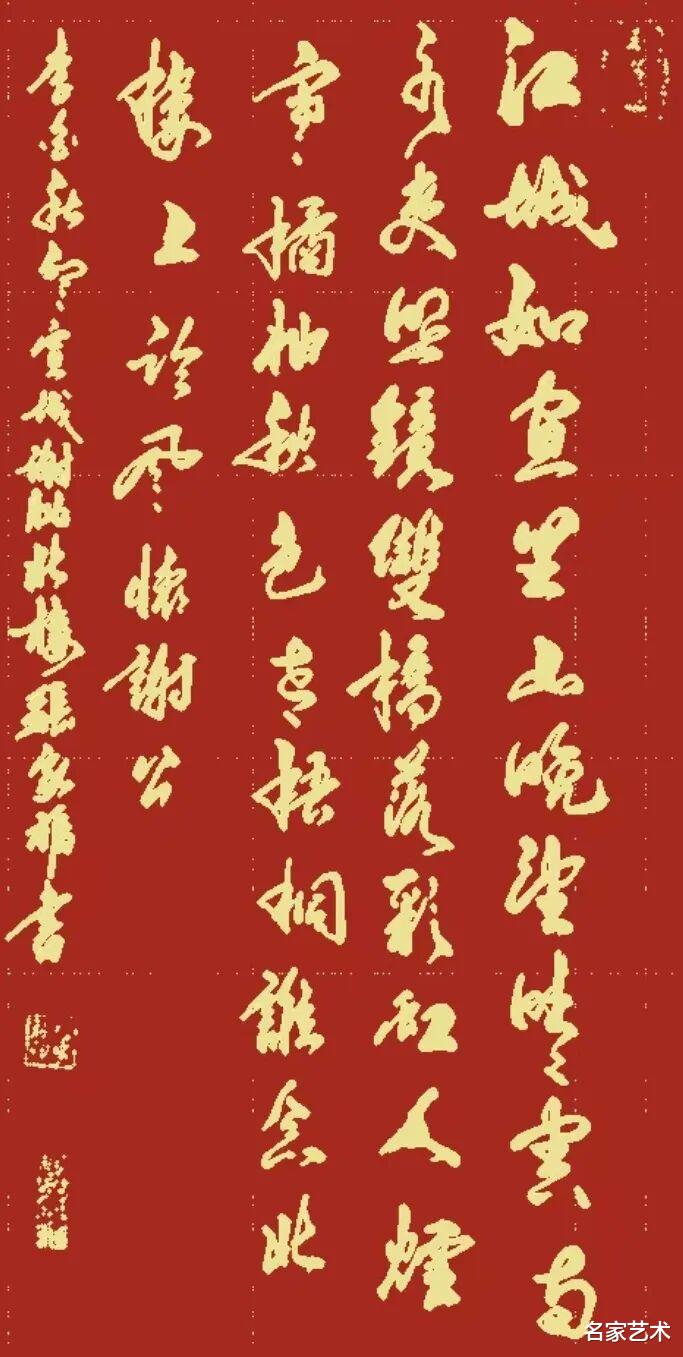 江城如畫里山晚望晴空兩
水夾明鏡雙橋落彩虹人煙
寒橘柚秋色老梧桐誰念北
樓上臨風懷謝公
李白秋登宣城謝朓北樓張書
名家艺术